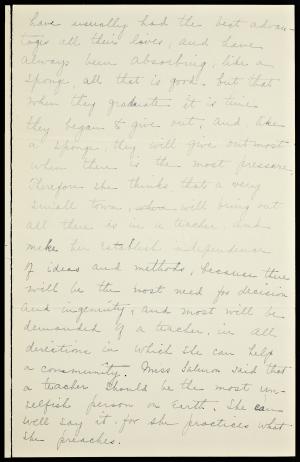 have usually had the best advan-
tages all their lives, and have
always been absorbing, like a
sponge, all that is good. but that
when they graduate it is time
they began to give out, and, like
a sponge, they will give out most
when there is the most pressure.
Therefore she thinks, that a very
small town, will bring out
all there is in a teacher, and
make her establish independence
of ideas and methods, because there
will be the most need for decision
and ingenuity, and most will be
demanded of a teacher, in all
directions in which she can help
a community. Miss Salmon said that
a teacher should be the most un-
selfish person on Earth. She can
well say it, for she practices what
she preaches.